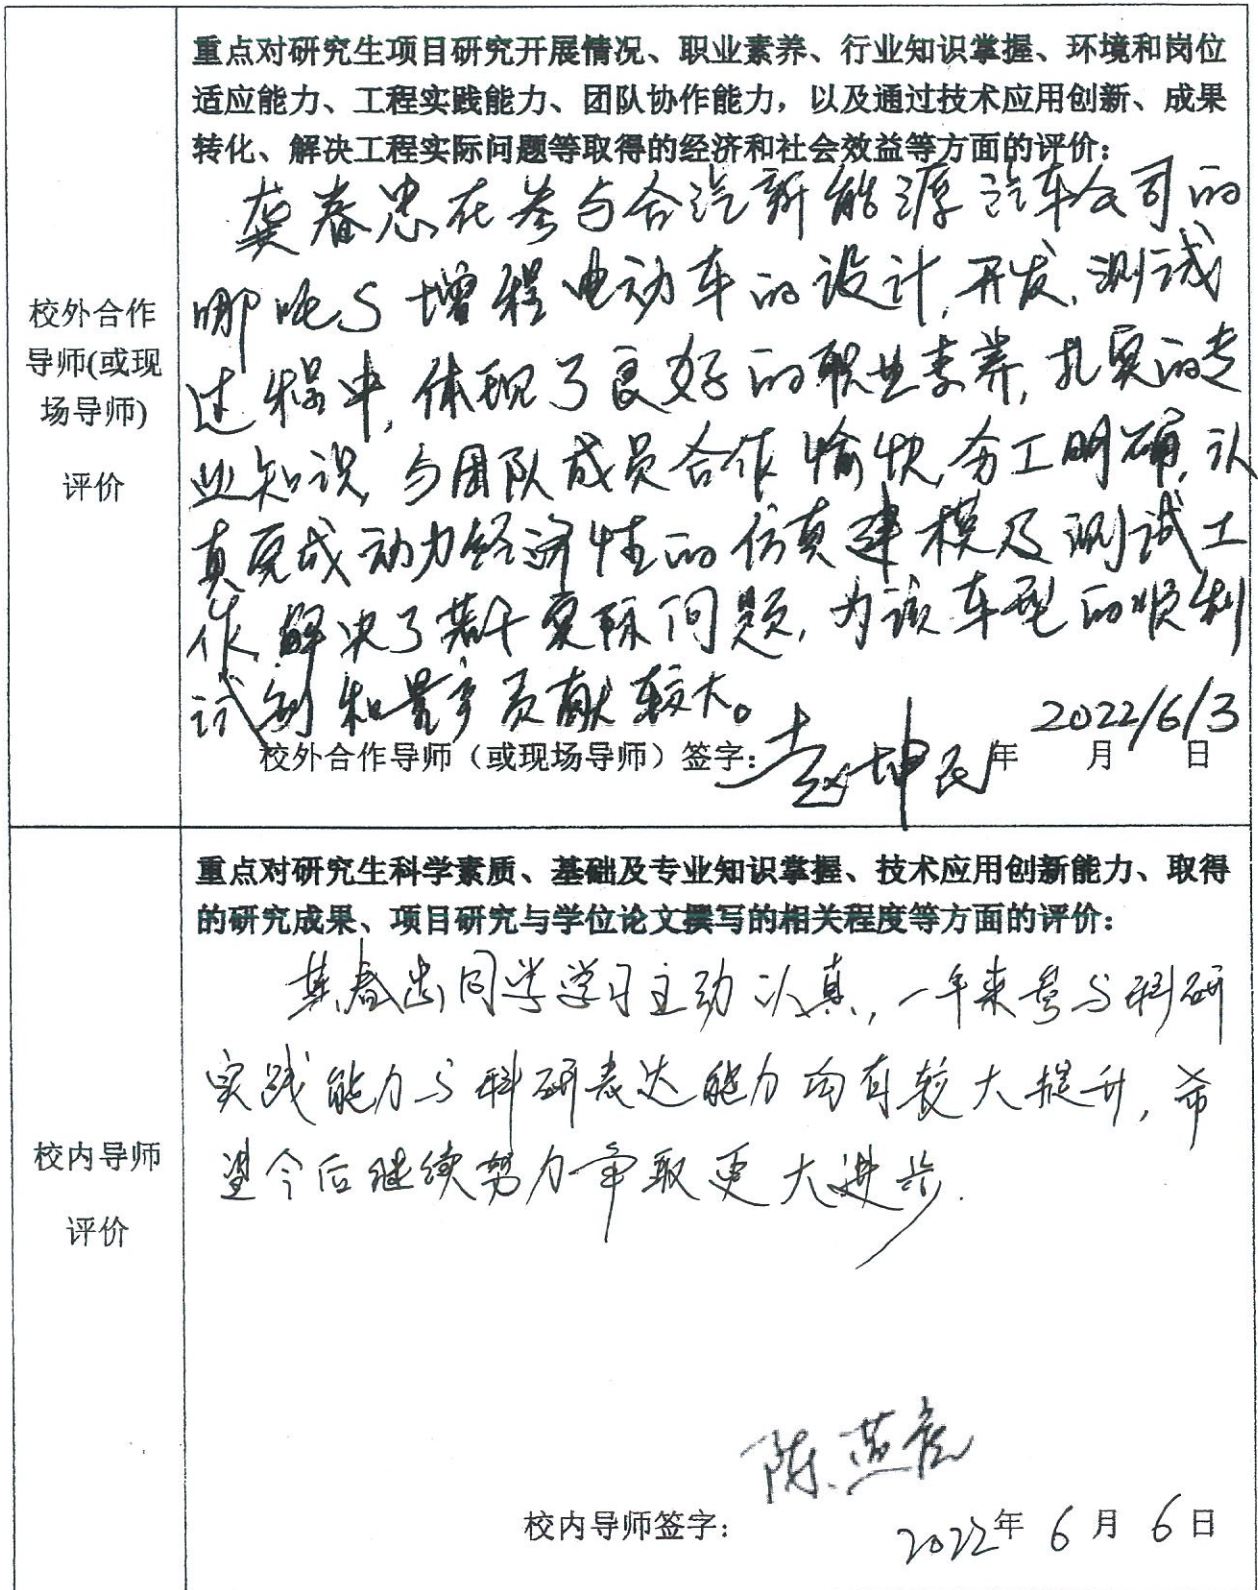 重点对研究生项目研究开展情况、职业素养、行业知识掌握、环境和岗位
适应能力、工程实践能力、团队协作能力，以及通过技术应用创新、成果
转化、解决工程实际问题等取得的经济和社会效益等方面的评价：
龚春忠在参与合汽新能源汽车公司的
哪吒S增程电动车的设计,开发,测试
过程中,体现了良好的职业素养,扎实的专
业知识,与团队成员合作愉快,分工明确,认
真完成动力经济性的仿真建模及测试工
作,解决了若干实际问题,为该车型的顺利
试制和量产贡献较大。
校外合作
导师(或现
场导师)
评价
2022/6/3
校外合作导师（或现场导师）签字：赵坤民 年 月 日
重点对研究生科学素质、基础及专业知识掌握、技术应用创新能力、取得
的研究成果、项目研究与学位论文撰写的相关程度等方面的评价：
龚春忠同学学习主动认真,一年来参与科研
实践能力与科研表达能力均有较大提升,希
望今后继续努力争取更大进步.
校内导师
评价
陈燕虎
校内导师签字：
2022年 6月 6日